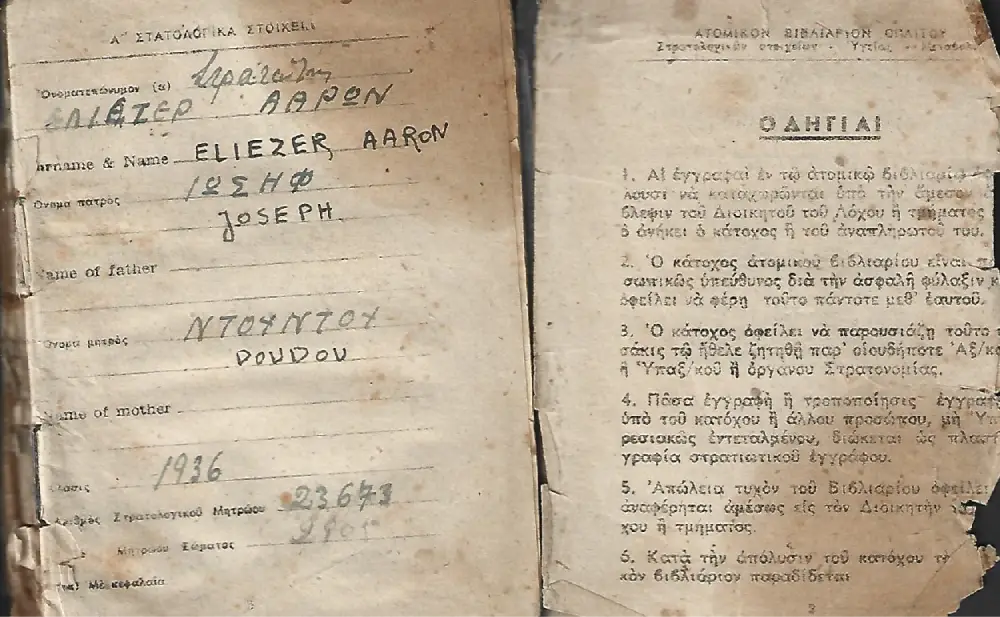 Α' ΣΤΑΤΟΛΟΓΙΚΑ ΣΤΟΙΧΕΙ
Ὀνοματεπώνυμον (α) Στρατιώτης
ΕΛΙΕΖΕΡ ΑΑΡΩΝ
urname & Name ELIEZER, AARON
Ὄνομα πατρὸς ΙΩΣΗΦ
JOSEPH
Name of father
Ὄνομα μητρὸς ΝΤΟΥΝΤΟΥ
DOUDOU
Name of mother
1936
Ἀριθμὸς Στρατολογικοῦ Μητρώου 23673
Μητρώου Σώματος
Μὲ κεφαλαία
ΑΤΟΜΙΚΟΝ ΒΙΒΛΙΑΡΙΟΝ ΟΠΛΙΤΟΥ
Στρατολογικῶν στοιχείων - Ὑγείας - Μεταβολ
ΟΔΗΓΙΑΙ
1. Αἱ ἐγγραφαὶ ἐν τῷ ἀτομικῷ βιβλιαρίῳ
λουσι νὰ καταχωρῶνται ὑπὸ τὴν ἄμεσον
βλεψιν τοῦ Διοικητοῦ τοῦ Λόχου ἢ τμήματος
ὃ ἀνήκει ὁ κάτοχος ἢ τοῦ ἀναπληρωτοῦ του.
2. Ὁ κάτοχος ἀτομικοῦ βιβλιαρίου εἶναι
σωπικῶς ὑπεύθυνος διὰ τὴν ἀσφαλῆ φύλαξιν κ
ὀφείλει νὰ φέρῃ τοῦτο πάντοτε μεθ' ἑαυτοῦ.
3. Ὁ κάτοχος ὀφείλει νὰ παρουσιάζῃ τοῦτο
σάκις τῷ ἤθελε ζητηθῆ παρ' οἱουδήποτε Ἀξ/κο
ἢ Ὑπαξ/κοῦ ἢ ὀργάνου Στρατονομίας.
4. Πᾶσα ἐγγραφὴ ἢ τροποποίησις ἐγγραφ
ὑπὸ τοῦ κατόχου ἢ ἄλλου προσώπου, μὴ Ὑπ
ρεσιακῶς ἐντεταλμένου, διώκεται ὡς πλαστ
γραφία στρατιωτικοῦ ἐγγράφου.
5. Ἀπώλεια τυχὸν τοῦ Βιβλιαρίου ὀφείλει
ἀναφέρηται ἀμέσως εἰς τὸν Διοικητὴν
χου ἢ τμήματος.
6. Κατὰ τὴν ἀπόλυσιν τοῦ κατόχου τ
κὸν βιβλιάριον παραδίδεται
3